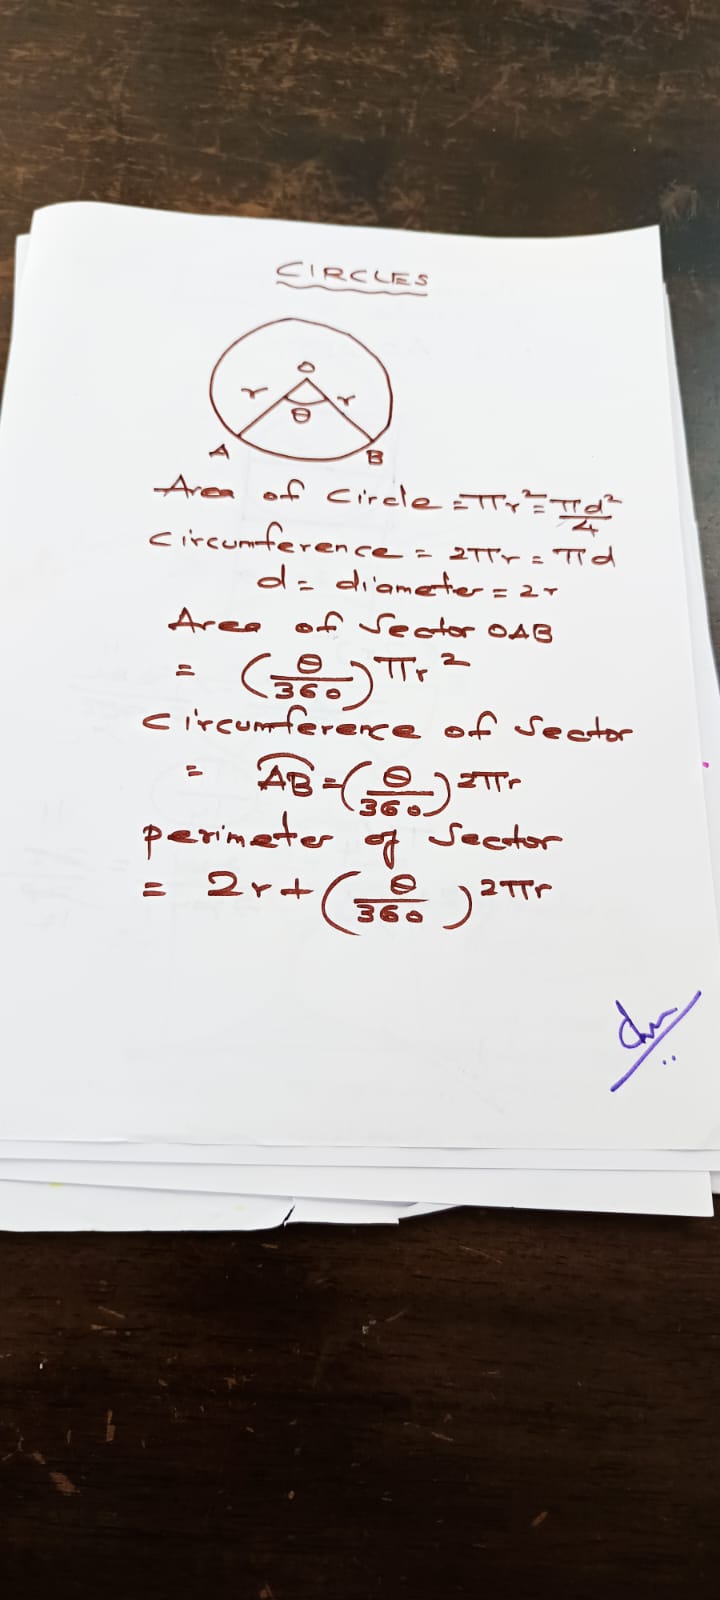 CIRCLES
O
r r
θ
A B
Area of Circle = πr² = πd²/4
Circumference = 2πr = πd
d = diameter = 2r
Area of Sector OAB
= (θ/360) πr²
Circumference of Sector
= A͡B = (θ/360) 2πr
perimeter of Sector
= 2r + (θ/360) 2πr